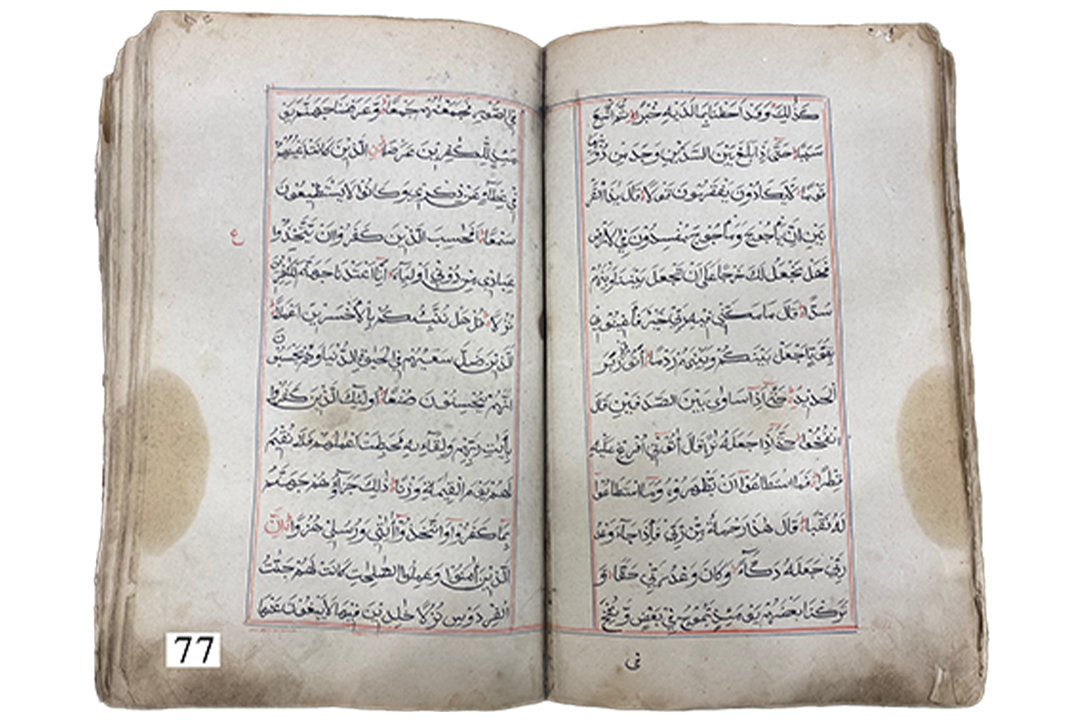 كذلك وقد احطنا بما لديه خبرا ثم اتبع
سببا حتى اذا بلغ بين السدين وجد من دونهما
قوما لا يكادون يفقهون قولا قالوا يذا القر
نين ان ياجوج وماجوج مفسدون في الارض
فهل نجعل لك خرجا على ان تجعل بيننا وبينهم
سدا قال ما مكني فيه ربي خير فاعينوني
بقوة اجعل بينكم وبينهم ردما اتوني زبر
الحديد حتى اذا ساوى بين الصدفين قال
انفخوا حتى اذا جعله نارا قال اتوني افرغ عليه
قطرا فما اسطاعوا ان يظهروه وما استطاعوا
له نقبا قال هذا رحمة من ربي فاذا جاء وعد
ربي جعله دكاء وكان وعد ربي حقا و
تركنا بعضهم يومئذ يموج في بعض ونفخ
في
في الصور فجمعنهم جمعا وعرضنا جهنم يو
مئذ للكفرين عرضا ن الذين كانت اعينهم
في غطاء عن ذكري وكانوا لا يستطيعون
سمعا افحسب الذين كفروا ان يتخذوا
ع
عبادي من دوني اولياء انا اعتدنا جهنم للكفرين
نزلا قل هل ننبئكم بالاخسرين اعملا
الذين ضل سعيهم في الحيوة الدنيا وهم يحسبون
انهم يحسنون صنعا اولئك الذين كفروا
بايت ربهم ولقاءه فحبطت اعملهم فلا نقيم
لهم يوم القيمة وزنا ذلك جزاؤهم جهنم
بما كفروا واتخذوا ايتي ورسلي هزوا ان
الذين امنوا وعملوا الصلحت كانت لهم جنت
الفردوس نزلا خلدين فيها لا يبغون عنها
77